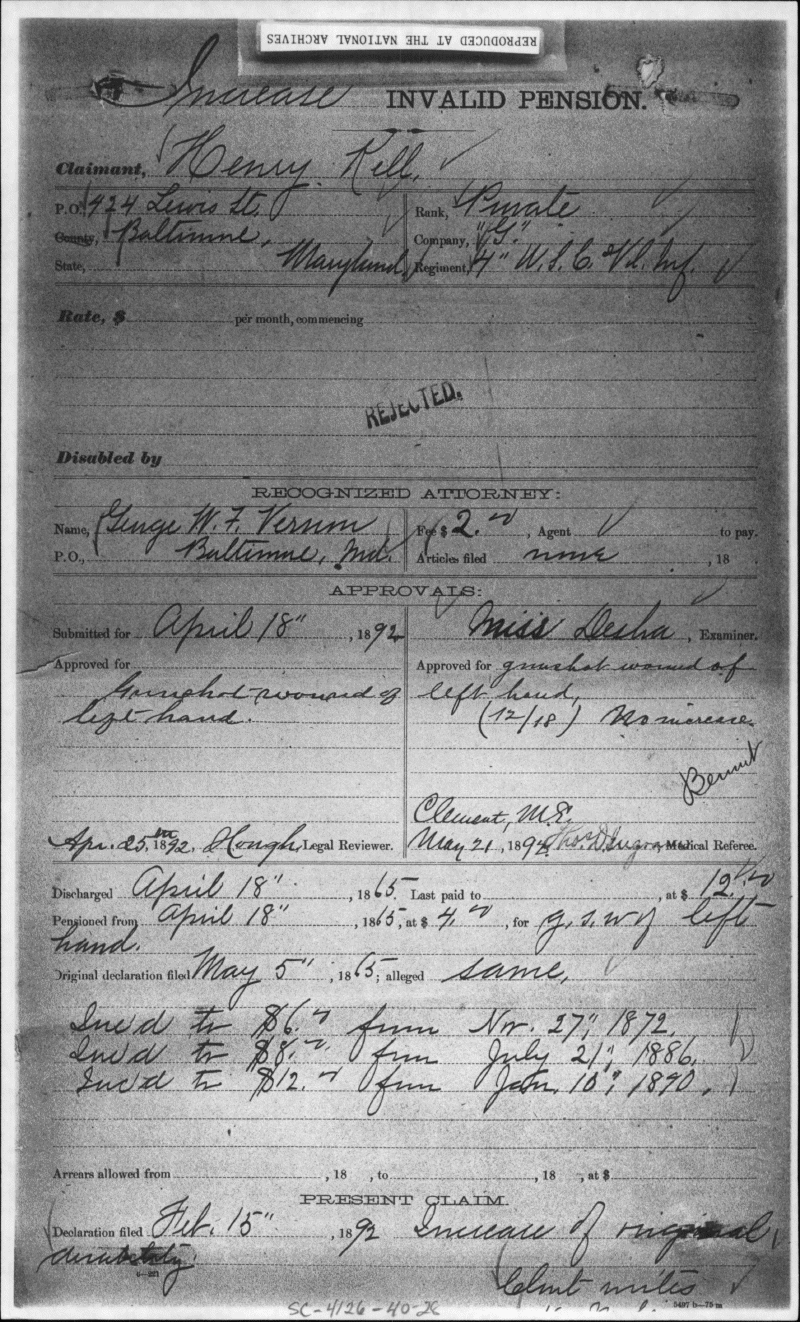 REPRODUCED AT THE NATIONAL ARCHIVES
Increase INVALID PENSION.
Claimant, Henry Kell,
P.O. 424 Lewis St. Rank, Private
County, Baltimore, Company, "G"
State, Maryland, Regiment, 4" U.S.C. Vol. Inf.
Rate, $ per month, commencing
REJECTED.
Disabled by
RECOGNIZED ATTORNEY:
Name, George W. F. Vernon Fee $ 2.00, Agent to pay.
P.O., Baltimore, Md. Articles filed none, 18 .
APPROVALS:
Submitted for April 18", 1892 Miss Desha, Examiner.
Approved for Approved for gunshot wound of
Gunshot wound of left hand,
left hand. (12/18) No increase.
Clement, M.E.
Apr. 25th 1892. Hough, Legal Reviewer. May 21, 1892, Thos D Ingram Medical Referee.
Discharged April 18", 1865 Last paid to , at $ 12.00
Pensioned from April 18", 1865, at $ 4.00, for g.s.w of left
hand.
Original declaration filed May 5", 1865; alleged same,
Inc'd to $6.00 from Nov. 27", 1872.
Inc'd to $8.00 from July 21", 1886.
Inc'd to $12.00 from Jan. 10", 1890.
Arrears allowed from , 18 , to , 18 , at $
PRESENT CLAIM.
Declaration filed Feb. 15", 1892 Increase of original
disability.
6—221 Clmt writes
5497 b—75 m
SC-4126-40-28